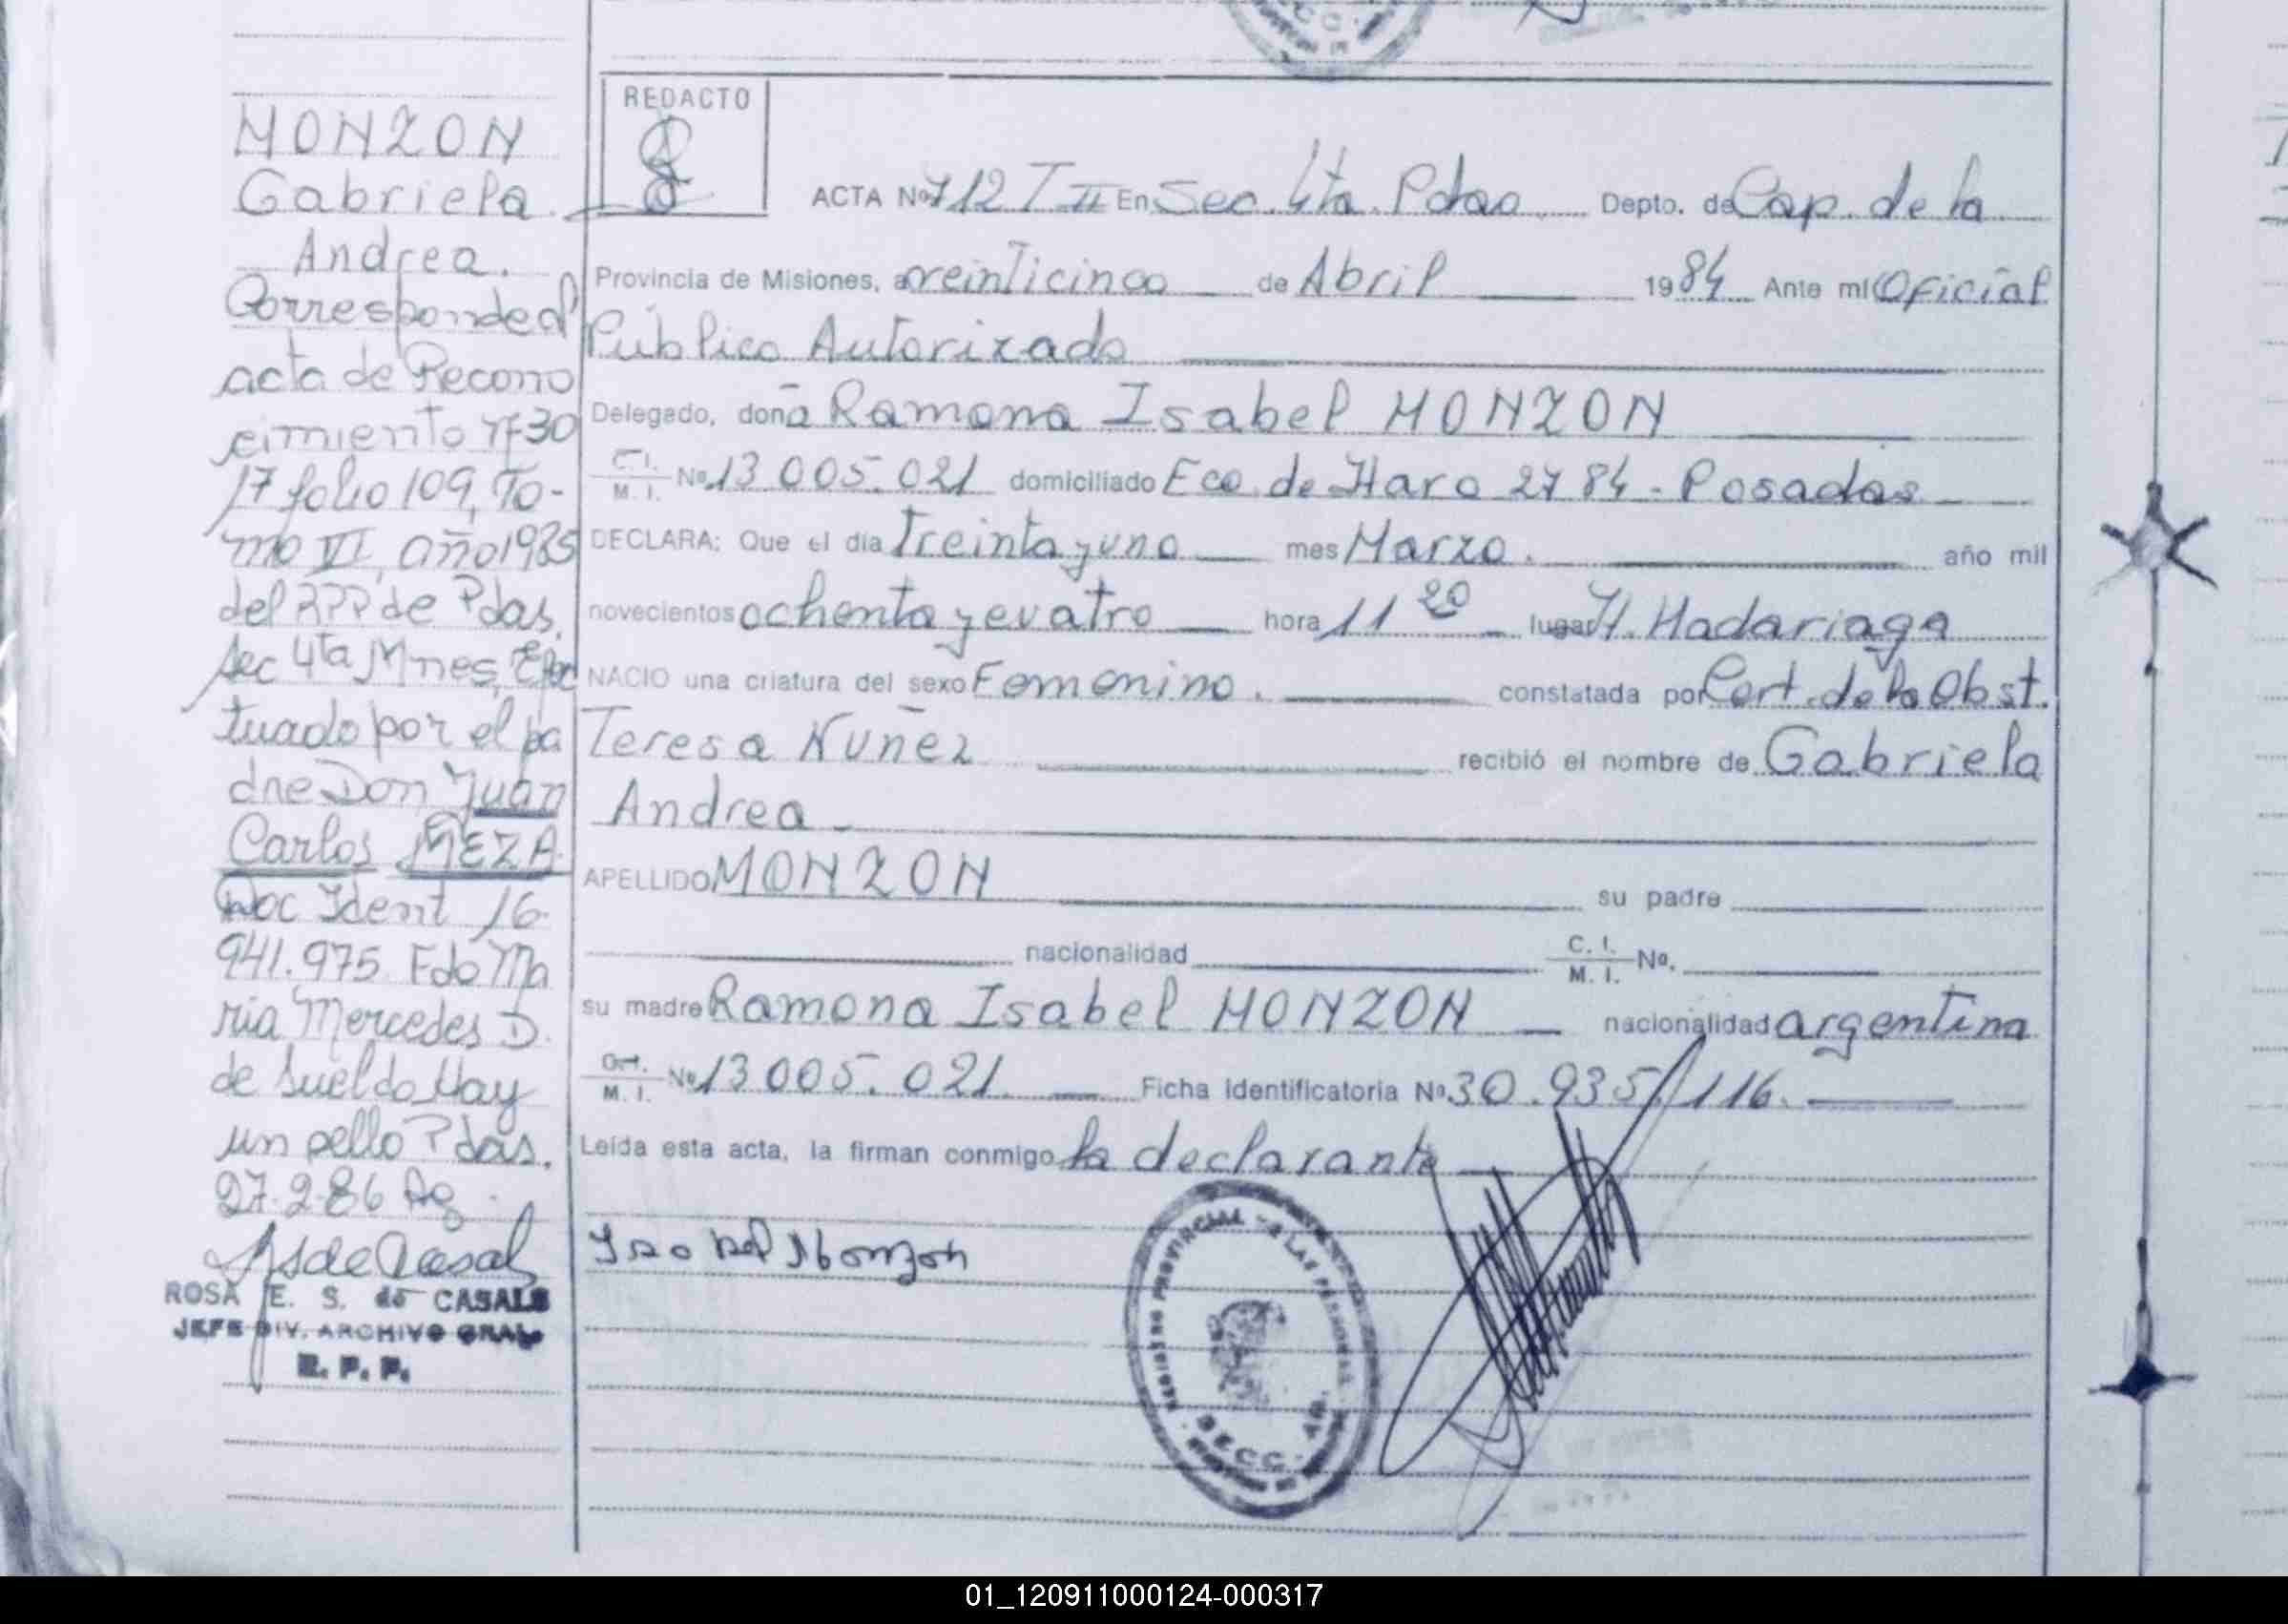 MONZON
Gabriela
Andrea.
Corresponde al
acta de Recono
cimiento Nº 30
17 folio 109, To-
mo VI, año 1985
del RPP de Pdas.
Sec 4ta Mnes, Efec
tuado por el pa
dre Don Juan
Carlos MEZA
Doc Ident 16.
941.975 Fdo Ma
ria Mercedes D.
de Sueldo Hay
un sello Pdas.
27-2-86
ROSA E. S. de CASALS
JEFE DIV. ARCHIVO GRAL
R. P. P.
REDACTO
ACTA Nº 712 T II En Sec. 4ta. Pdas. Depto. de Cap. de la
Provincia de Misiones, a veinticinco de Abril 1984 Ante mi Oficial
Público Autorizado
Delegado, doña Ramona Isabel MONZON
C. I. M. I. Nº 13.005.021 domiciliado Fco. de Haro 2784 - Posadas
DECLARA: Que el día treinta y uno mes Marzo. año mil
novecientos ochenta y cuatro hora 11 20 lugar H. Madariaga
NACIO una criatura del sexo Femenino. constatada por Cert. de la Obst.
Teresa Nuñez recibió el nombre de Gabriela
Andrea
APELLIDO MONZON su padre
nacionalidad C. I. M. I. Nº.
su madre Ramona Isabel MONZON nacionalidad argentina
M. I. Nº 13.005.021. Ficha Identificatoria Nº 30.935/116.
Leída esta acta, la firman conmigo la declarante
Isabel Monzon
SECC. 4ta.
01_120911000124-000317